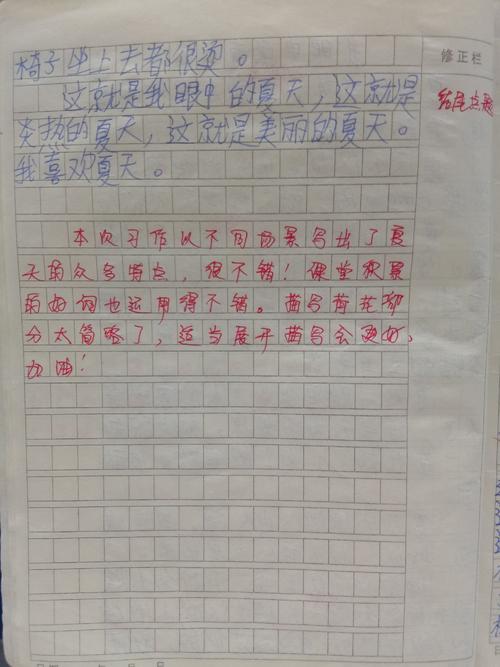 修正栏
椅子坐上去都很烫。
这就是我眼中的夏天，这就是
炎热的夏天，这就是美丽的夏天。
我喜欢夏天。
结尾点题
本次习作以不同场景写出了夏
天的众多特点，很不错！课堂积累
的好词也运用得不错。描写荷花部
分太简略了，适当展开描写会更好，
加油！